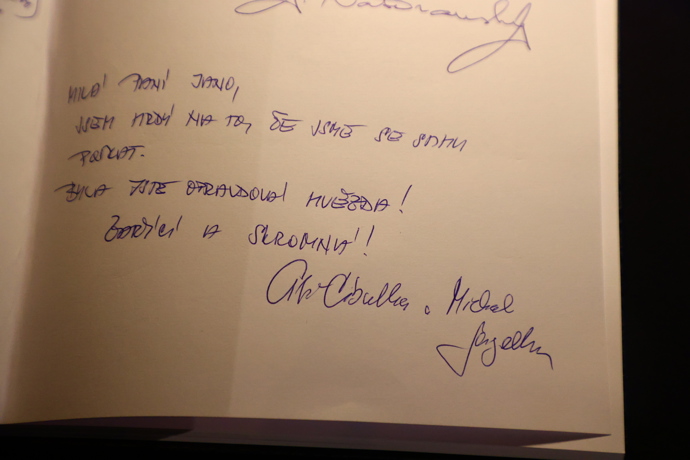 MILÁ PANÍ JANO,
JSEM HRDÝ NA TO, ŽE JSME SE SMĚLI
POTKAT.
BYLA JSTE OPRAVDOVÁ HVĚZDA!
ZÁŘÍCÍ A SKROMNÁ!
Cibulka a Michal